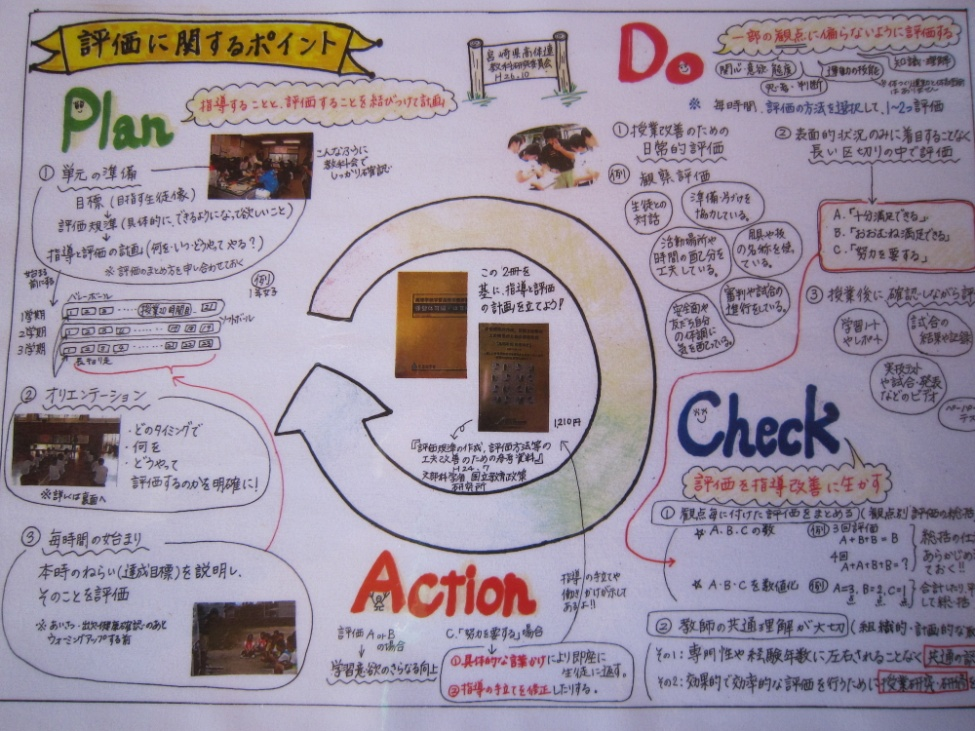 評価に関するポイント
宮崎県高体連
教科研究委員会
H26.10
Plan
指導することと、評価することを結びつけて計画
① 単元の準備
目標 (目指す生徒像)
評価規準 (具体的に、できるようになって欲しいこと)
指導と評価の計画 (何を・いつ・どうやってやる?)
※ 評価のまとめ方を申し合わせておく
こんなふうに
教科会で
しっかり確認
始まる
前に
例
バレーボール
1学期
2学期
3学期
② オリエンテーション
・どのタイミングで
・何を
・どうやって
評価するのかを明確に!
※詳しくは裏面へ
③ 毎時間の始まり
本時のねらい(達成目標)を説明し、
そのことを評価
※ あいさつ・出欠・健康確認のあと
ウォーミングアップする前
この2冊を
基に、指導と評価
の計画を立てよう!
1210円
『評価規準の作成、評価方法等の
工夫改善のための参考資料』
H24.7
文部科学省 国立教育政策
研究所
Do
一部の観点に偏らないように評価する
関心・意欲・態度
思考・判断
運動の技能
知識・理解
※ 毎時間、評価の方法を選択して、1~2つ評価
① 授業改善のための
日常的評価
例 観察評価
生徒との
対話
準備・片づけを
協力している。
活動場所や
時間の配分を
工夫している。
用具や技
の名称を使っ
ている。
安全面や
友だち自分
の体調に
気を配っている。
審判や試合の
進行をしている。
② 表面的状況のみに着目することなく
長い区切りの中で評価
A.「十分満足できる」
B.「おおむね満足できる」
C.「努力を要する」
③ 授業後に確認しながら評
学習ノート
やレポート
試合の
結果や記録
実技テスト
や試合・発表
などのビデオ
Check
評価を指導改善に生かす
① 観点毎に付けた評価をまとめる (観点別評価の総括
☆ A.B.Cの数
例 3回評価
A+B+B=B
4回
A+A+B+B=?
総括の仕
あらかじめ
ておく!!
☆ A・B・Cを数値化
例 A=3, B=2, C=1
合計したり
して総括
② 教師の共通理解が大切 (組織的・計画的な
その1:専門性や経験年数に左右されることなく共通の認
その2:効果的で効率的な評価を行うために授業研究・研修
Action
指導の手立てや
働きかけが示して
あるよ!!
評価 A or B
の場合
学習意欲のさらなる向上
C.「努力を要する」場合
①.具体的な言葉かけにより即座に
生徒に返す。
②指導の手立てを修正したりする。